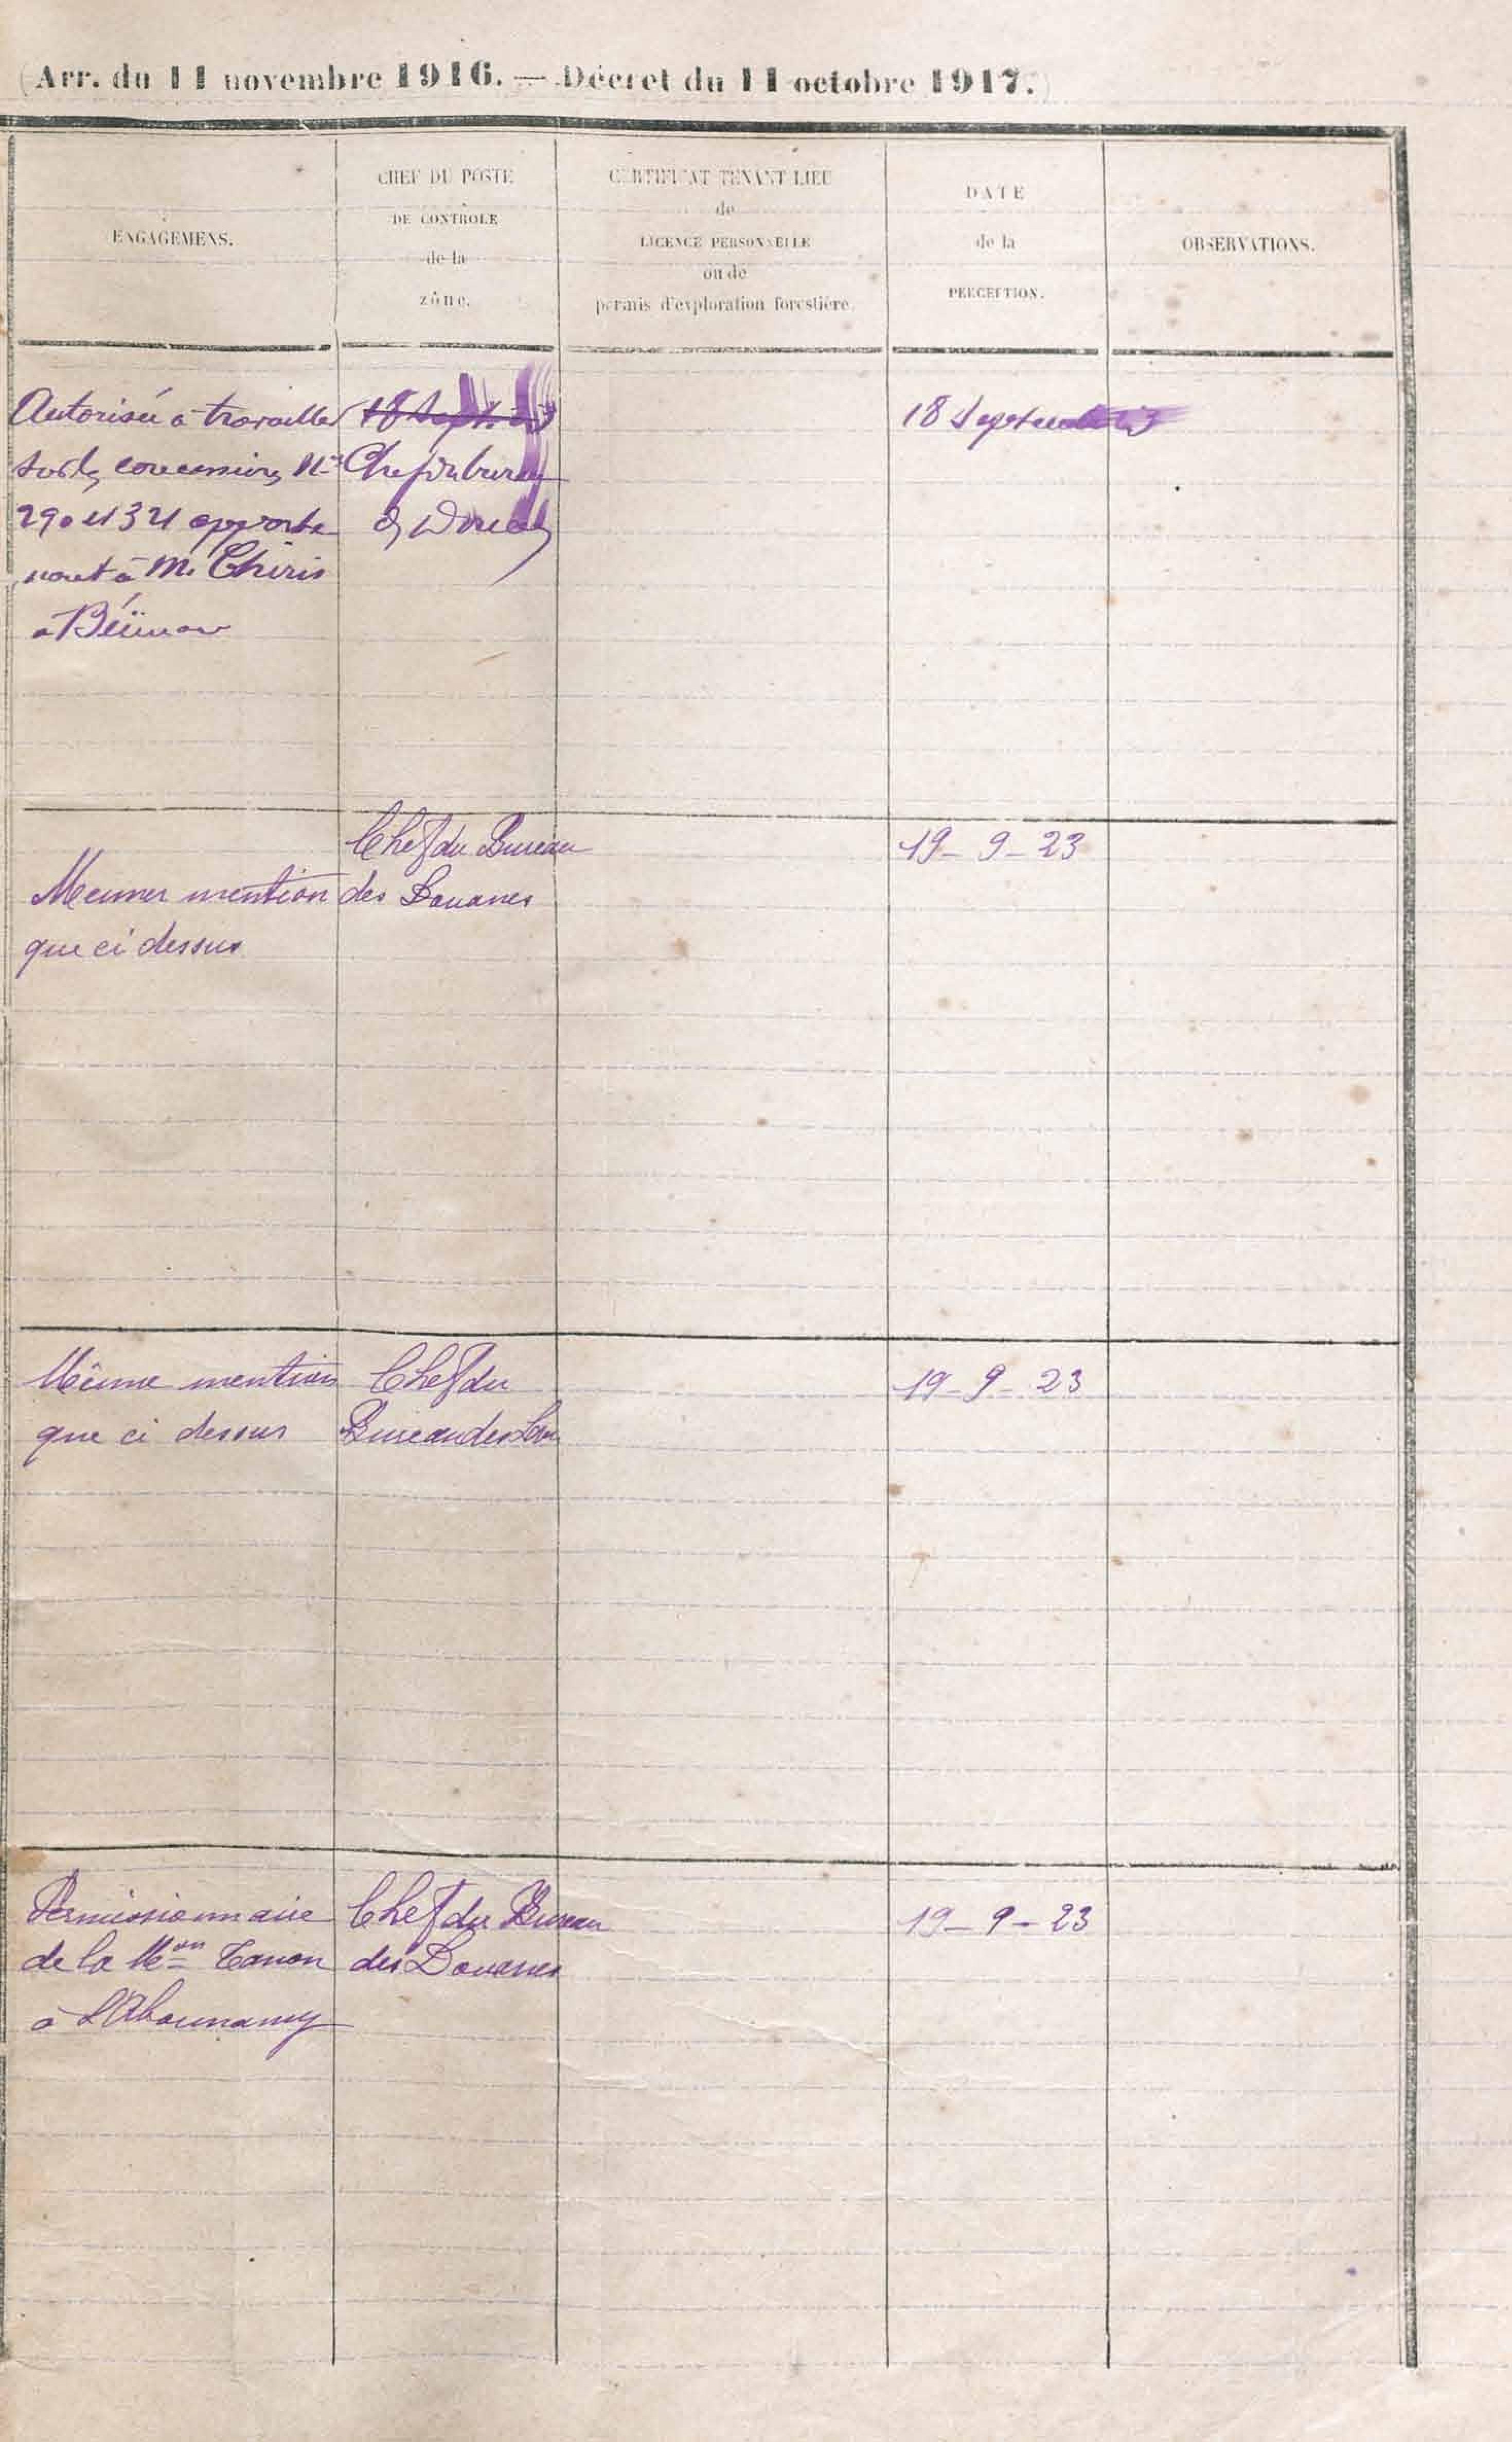 (Arr. du 11 novembre 1916. — Décret du 11 octobre 1917.)
ENGAGEMENS.
CHEF DU POSTE
DE CONTROLE
de la
zône.
CERTIFICAT TENANT LIEU
de
LICENCE PERSONNELLE
ou de
permis d'exploration forestière.
DATE
de la
PERCEPTION.
OBSERVATIONS.
Autorisée à travailler
concessions
290 et 321 apparte
nant à M. Chiris
à
18 Sept. 23
Chef du bureau
18 Septembre 23
Même mention
que ci dessus
Chef du Bureau
des Douanes
19-9-23
Même mention
que ci dessus
Chef du
Bureau des
19-9-23
Permissionnaire
de la Mon Tanon
à l'Abounamy
Chef du Bureau
des Douanes
19-9-23